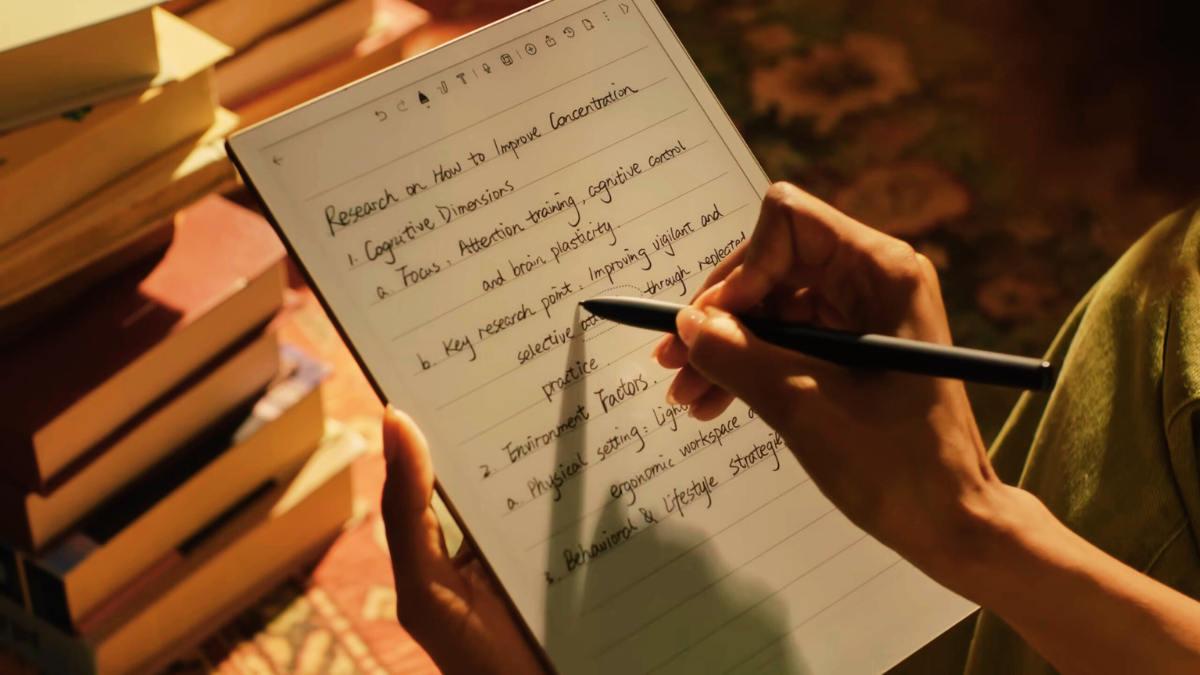 Research on How to Improve Concentration
1. Cognitive Dimensions
a. Focus: Attention training, cognitive control
and brain plasticity.
b. Key research point: Improving vigilant and
selective through repleated
practice
2. Environment Factors.
a. Physical setting:
ergonomic workspace
3. Behavioral & Lifestyle strategies